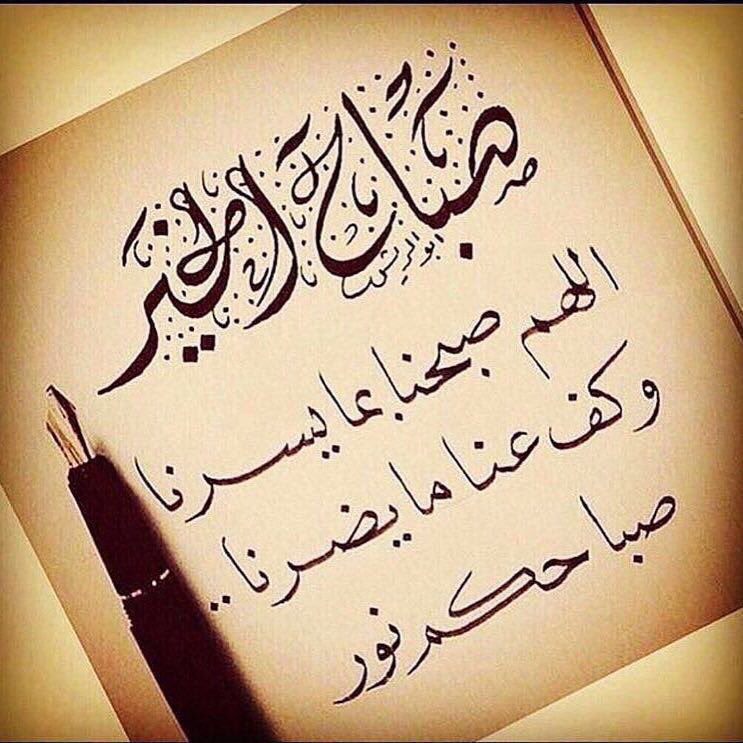 صباح الخير
اللهم صبحنا بما يسرنا
وكف عنا ما يضرنا..
صباحكم نور